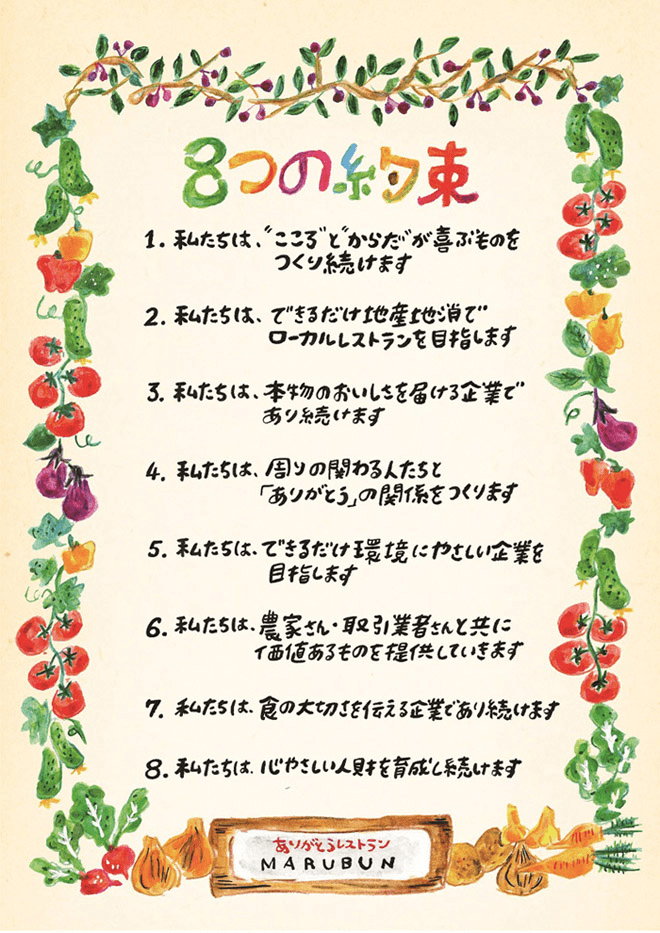 8つの約束
1. 私たちは、"こころ"と"からだ"が喜ぶものを
つくり続けます
2. 私たちは、できるだけ地産地消で
ローカルレストランを目指します
3. 私たちは、本物のおいしさを届ける企業で
あり続けます
4. 私たちは、周りの関わる人たちと
「ありがとう」の関係をつくります
5. 私たちは、できるだけ環境にやさしい企業を
目指します
6. 私たちは、農家さん・取引業者さんと共に
価値あるものを提供していきます
7. 私たちは、食の大切さを伝える企業であり続けます
8. 私たちは、心やさしい人財を育成し続けます
ありがとうレストラン
MARUBUN